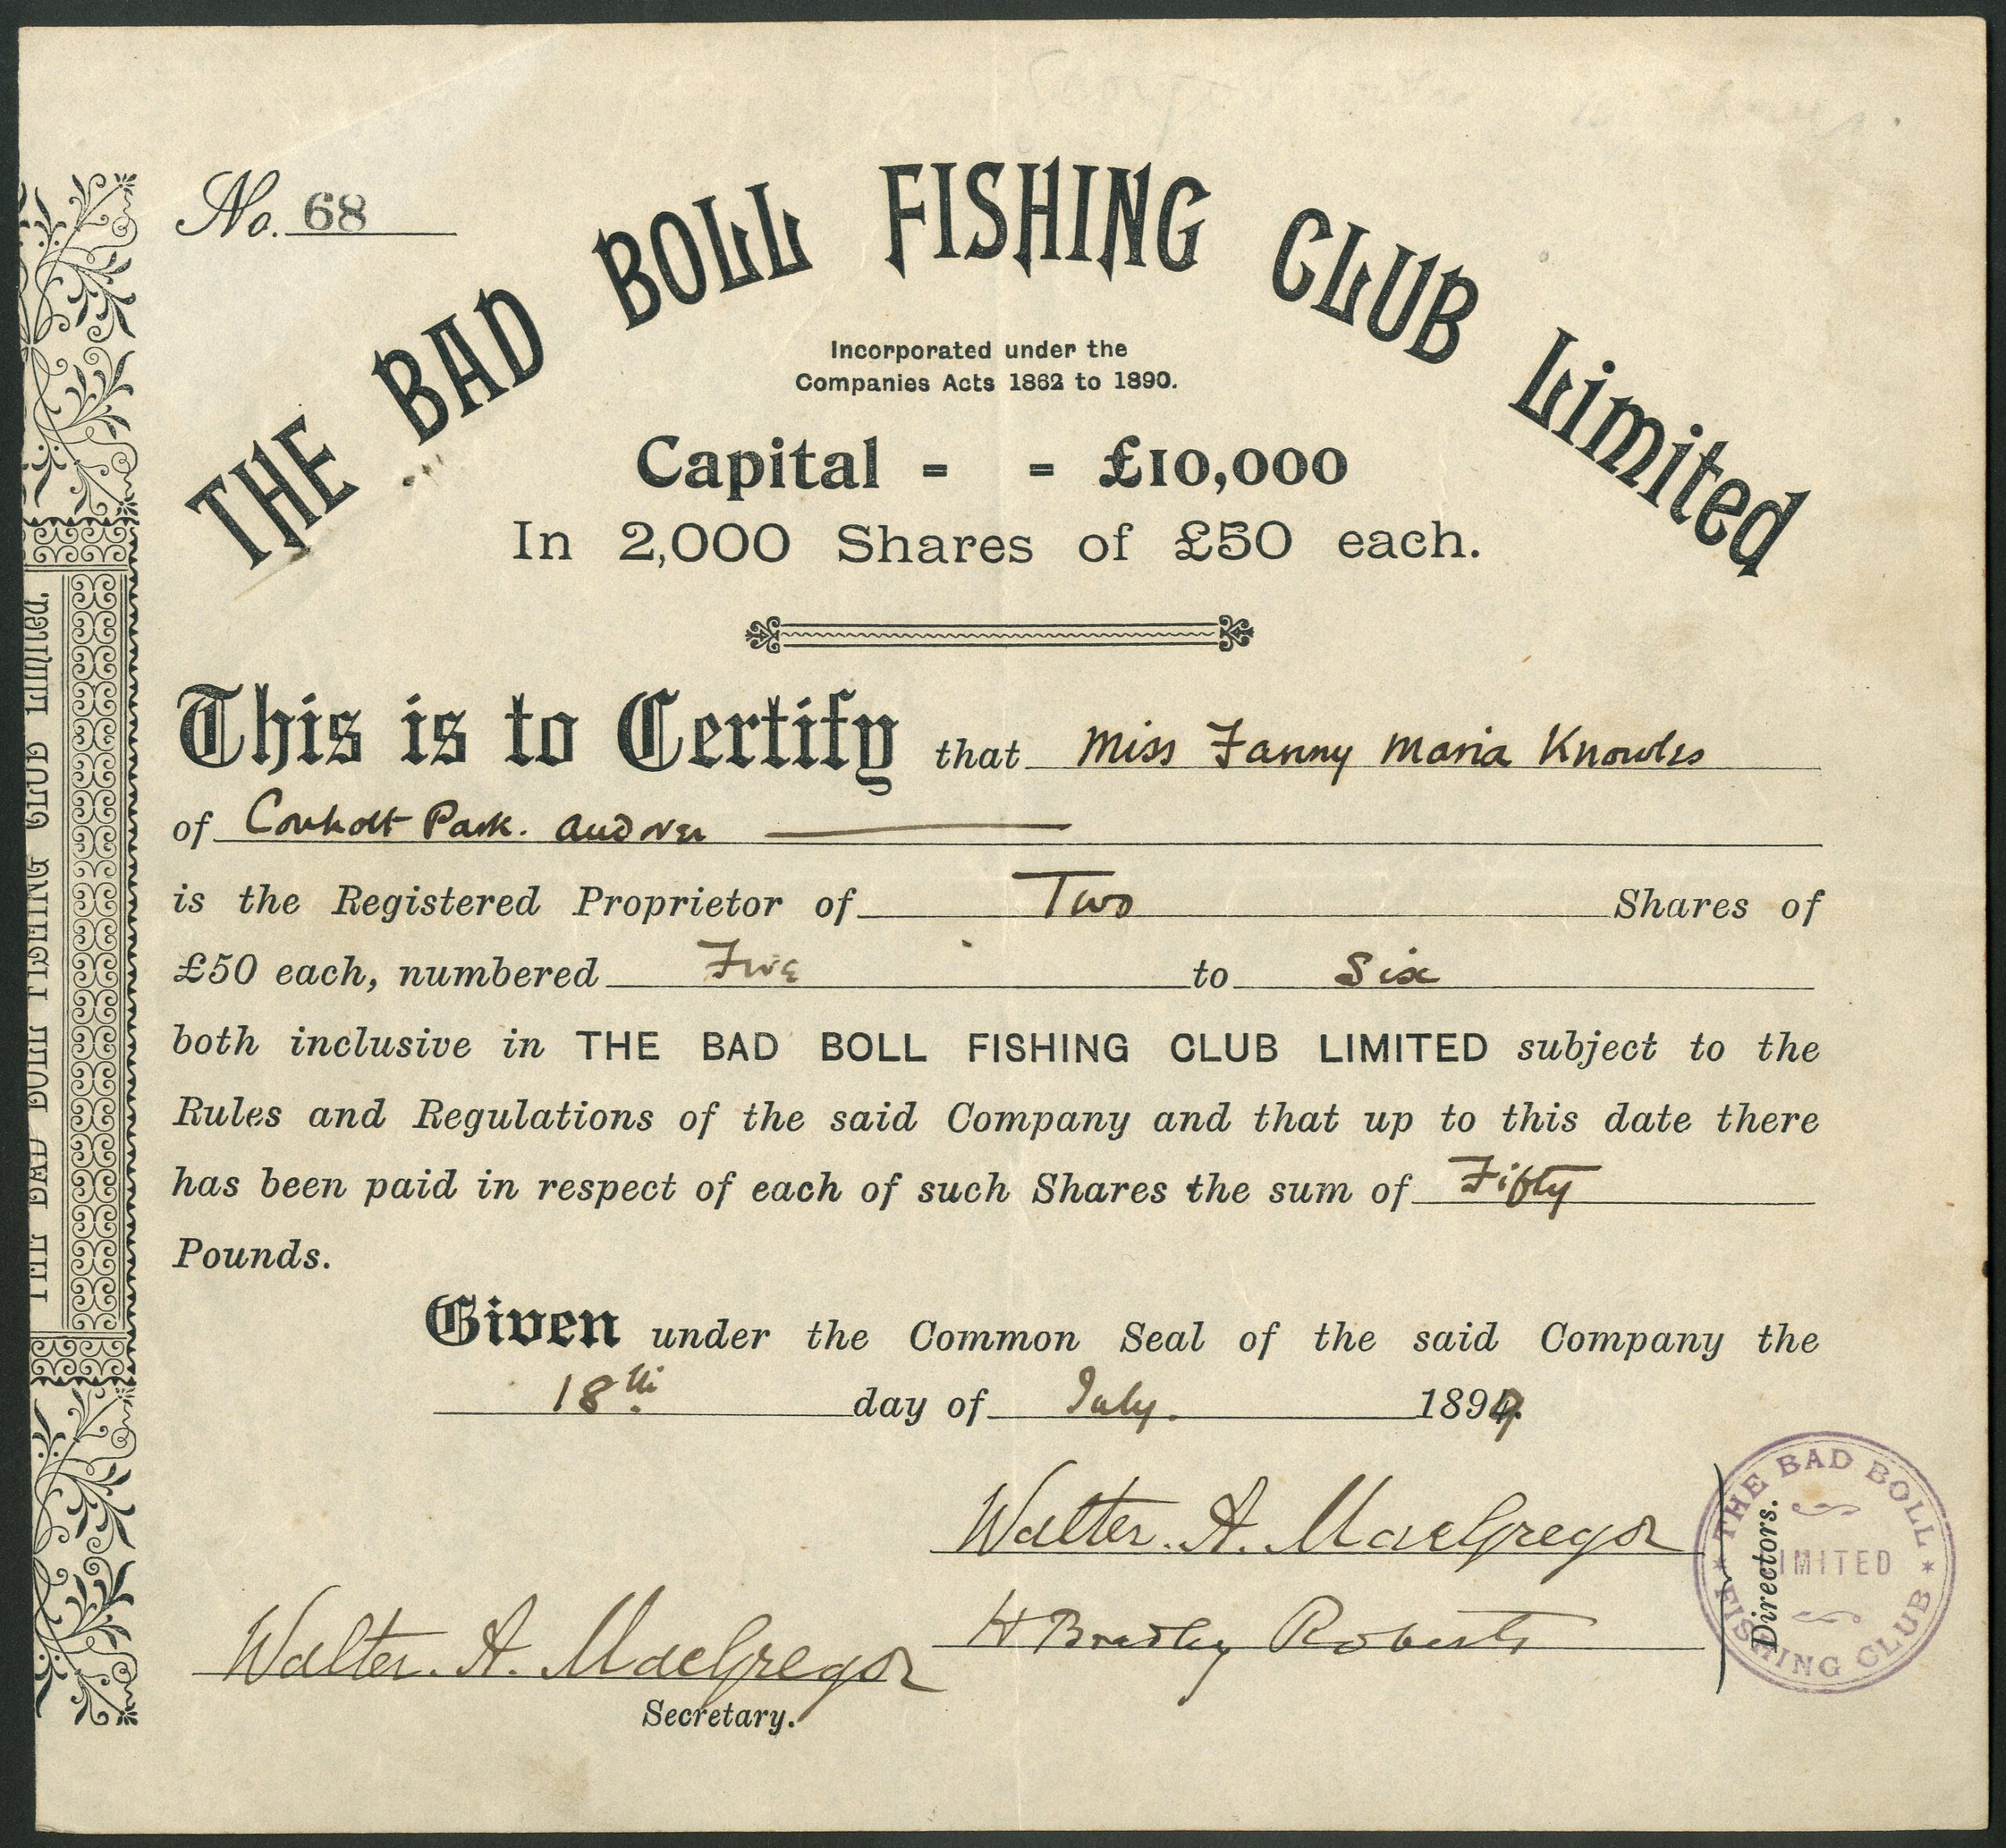 No. 68
THE BAD BOLL FISHING CLUB Limited
Incorporated under the
Companies Acts 1862 to 1890.
Capital = = £10,000
In 2,000 Shares of £50 each.
This is to Certify that Miss Fanny Maria Knowles
of Conholt Park. Andover
is the Registered Proprietor of Two Shares of
£50 each, numbered Five to Six
both inclusive in THE BAD BOLL FISHING CLUB LIMITED subject to the
Rules and Regulations of the said Company and that up to this date there
has been paid in respect of each of such Shares the sum of Fifty
Pounds.
Given under the Common Seal of the said Company the
18th day of July. 189
Walter. A. MacGregor
H Bradley Roberts
Directors.
Walter. A. MacGregor
Secretary.
THE BAD BOLL FISHING CLUB
LIMITED
THE BAD BOLL FISHING CLUB Limited.